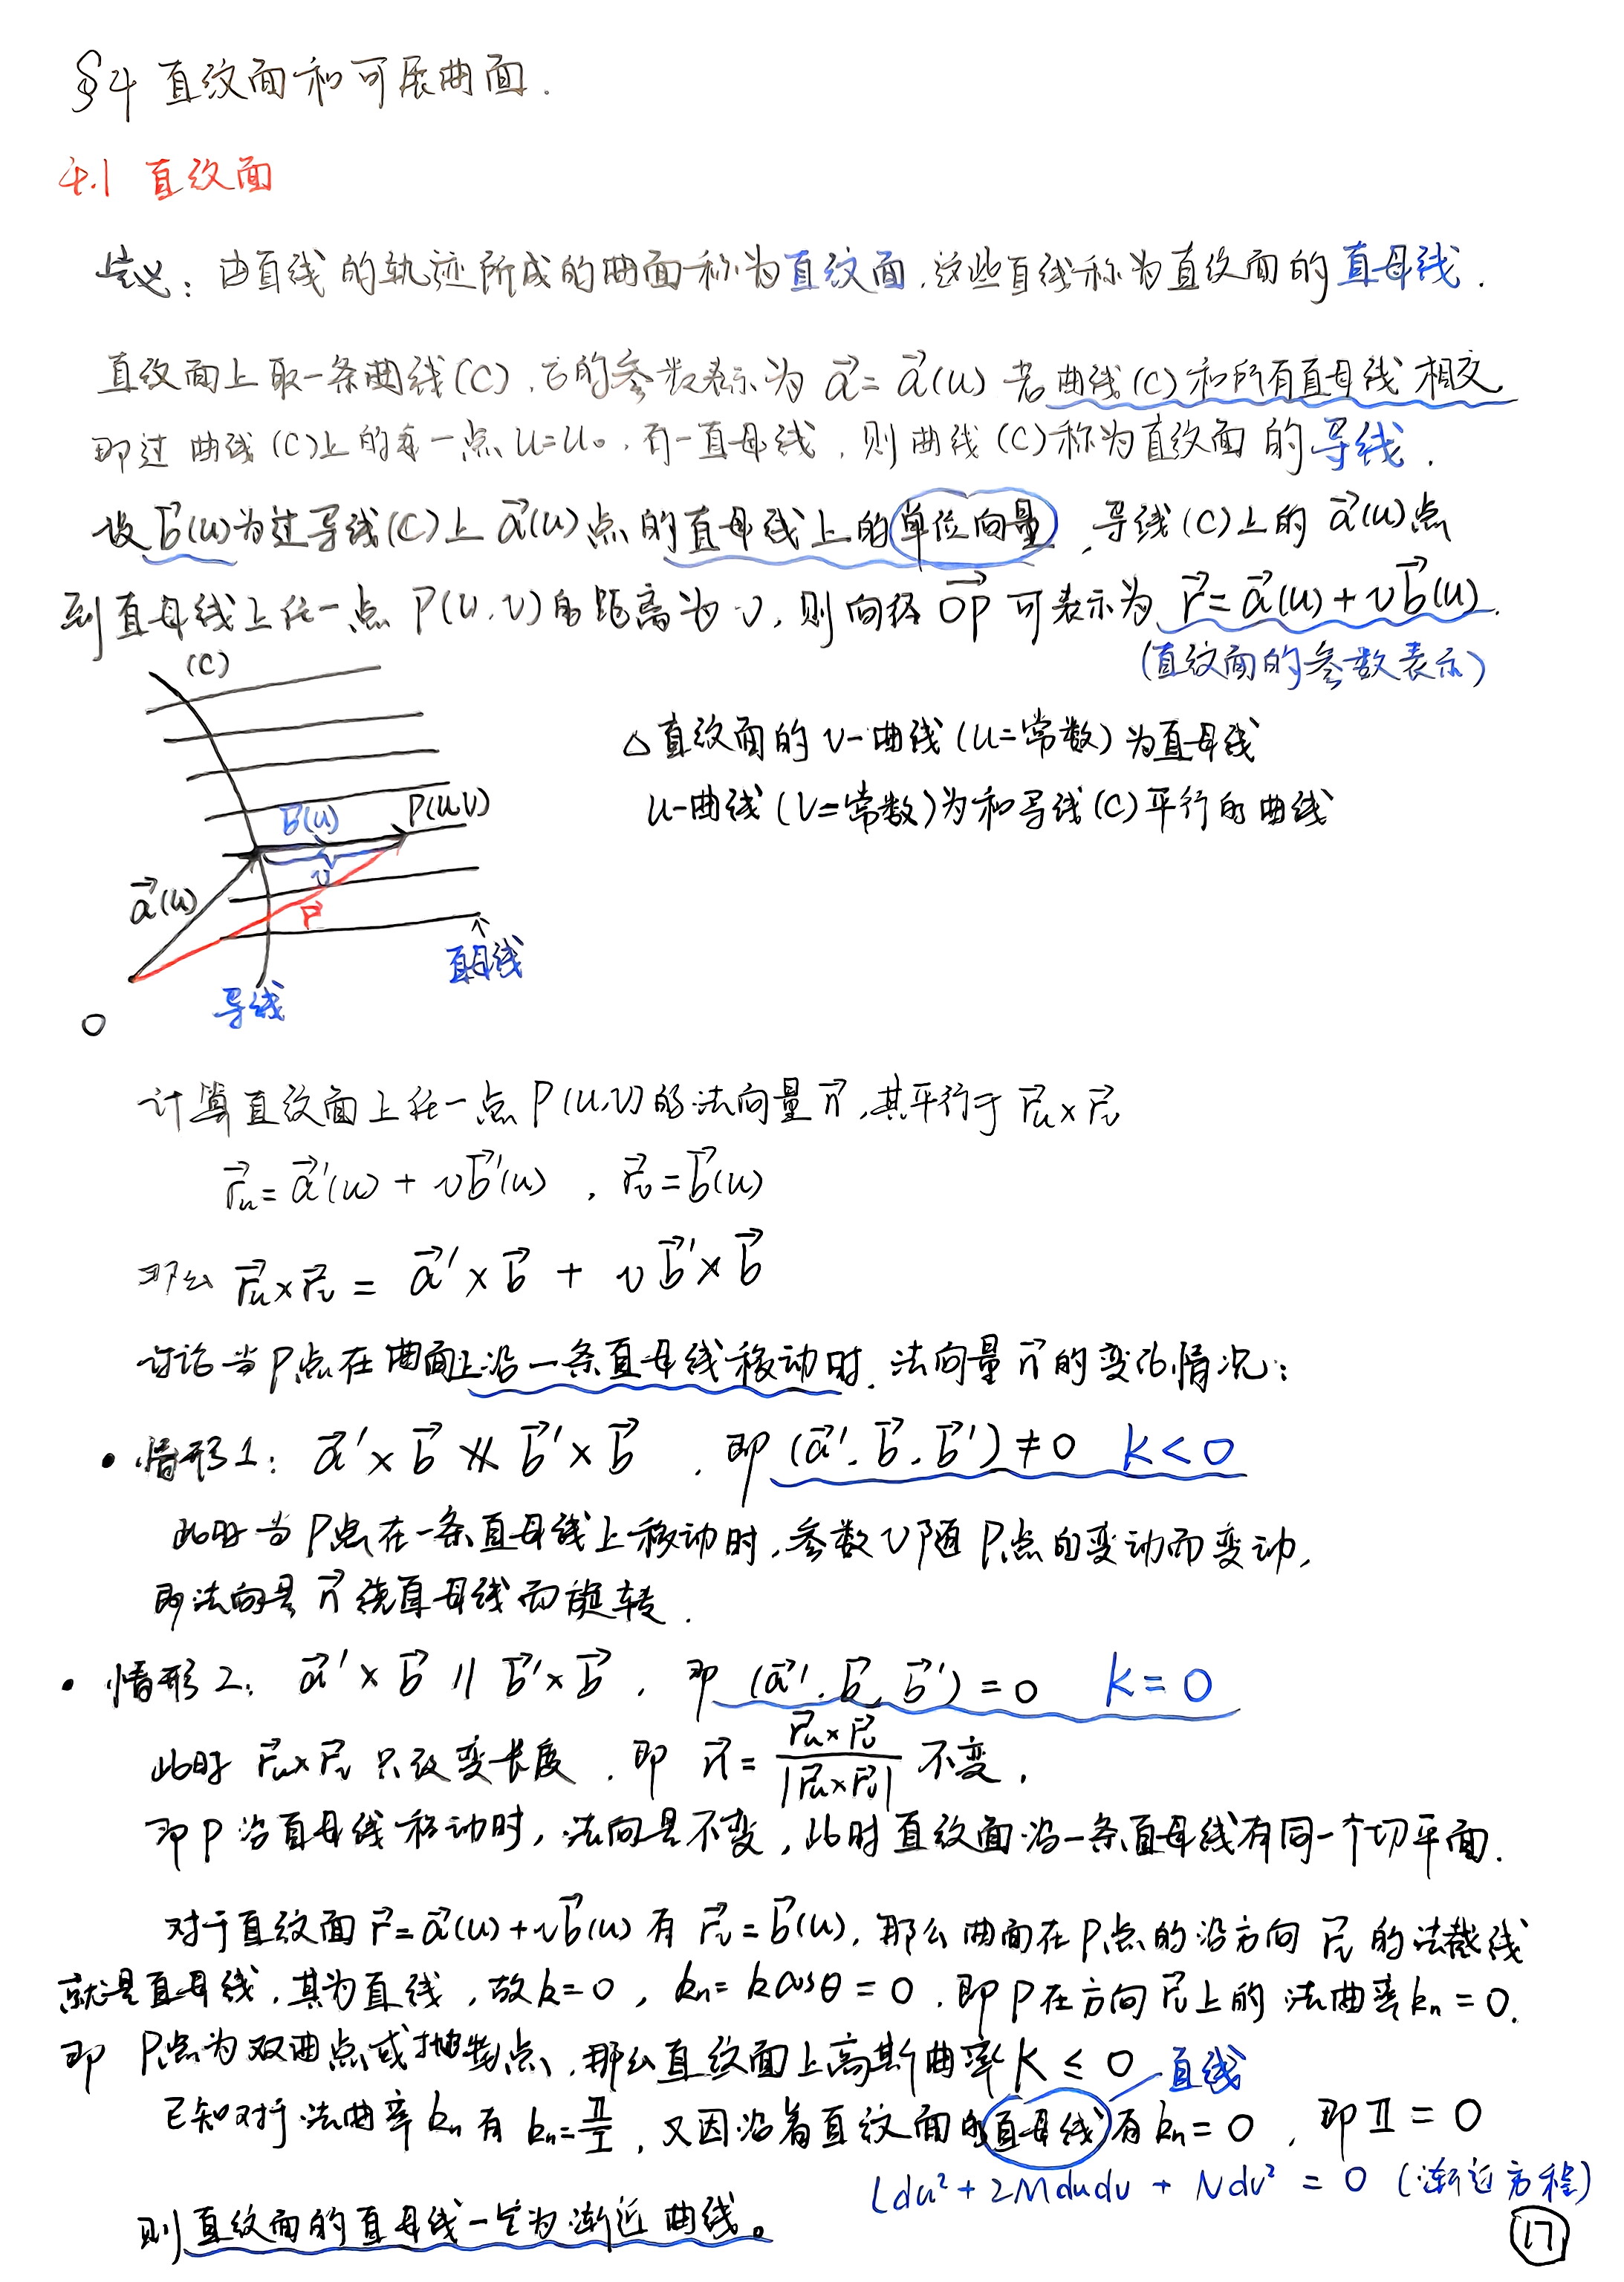 §4 直纹面和可展曲面.
4.1 直纹面
定义: 由直线的轨迹所成的曲面称为直纹面,这些直线称为直纹面的直母线.
直纹面上取一条曲线(C),它的参数表示为 a⃗=a⃗(u) 若曲线(C)和所有直母线相交
即过曲线(C)上的每一点u=u₀,有一直母线,则曲线(C)称为直纹面的导线.
设b⃗(u)为过导线(C)上a⃗(u)点的直母线上的单位向量,导线(C)上的a⃗(u)点
到直母线上任一点P(u,v)的距离为v,则向径O⃗P可表示为 r⃗=a⃗(u)+vb⃗(u).
(直纹面的参数表示)
(C)
△直纹面的v-曲线(u=常数)为直母线
u-曲线(v=常数)为和导线(C)平行的曲线
b⃗(u)
P(u,v)
v
a⃗(u)
r⃗
直母线
导线
O
计算直纹面上任一点P(u,v)的法向量n⃗,其平行于r⃗ᵤ×r⃗ᵥ
r⃗ᵤ=a⃗'(u)+vb⃗'(u) , r⃗ᵥ=b⃗(u)
那么 r⃗ᵤ×r⃗ᵥ = a⃗'×b⃗ + vb⃗'×b⃗
讨论当P点在曲面上沿一条直母线移动时,法向量n⃗的变化情况:
• 情形1: a⃗'×b⃗ ∦ b⃗'×b⃗ , 即(a⃗',b⃗,b⃗')≠0 K<0
此时当P点在一条直母线上移动时,参数v随P点的变动而变动,
即法向量n⃗绕直母线而旋转.
• 情形2: a⃗'×b⃗ // b⃗'×b⃗ , 即(a⃗',b⃗,b⃗')=0 K=0
此时r⃗ᵤ×r⃗ᵥ只改变长度,即 n⃗=(r⃗ᵤ×r⃗ᵥ)/|r⃗ᵤ×r⃗ᵥ| 不变,
即P沿直母线移动时,法向量不变,此时直纹面沿一条直母线有同一个切平面.
对于直纹面r⃗=a⃗(u)+vb⃗(u)有r⃗ᵥ=b⃗(u),那么曲面在P点的沿方向r⃗ᵥ的法截线
就是直母线,其为直线,故k=0, kₙ=kcosθ=0,即P在方向r⃗ᵥ上的法曲率kₙ=0.
即 P点为双曲点或抛物点,那么直纹面上高斯曲率K≤0
直线
已知对于法曲率kₙ有kₙ=Ⅱ/Ⅰ,又因沿着直纹面的直母线有kₙ=0,即Ⅱ=0
Ldu²+2Mdudv+Ndv²=0 (渐近方程)
则直纹面的直母线一定为渐近曲线。
⑰